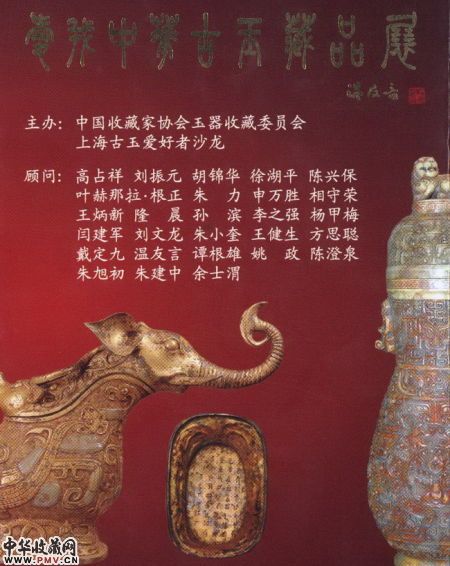 爱我中华古玉藏品展
温友言
主办：中国收藏家协会玉器收藏委员会
上海古玉爱好者沙龙
顾问：高占祥 刘振元 胡锦华 徐湖平 陈兴保
叶赫那拉·根正 朱 力 申万胜 相守荣
王炳新 隆 晨 孙 滨 李之强 杨甲梅
闫建军 刘文龙 朱小奎 王健生 方思聪
戴定九 温友言 谭根雄 姚 政 陈澄泉
朱旭初 朱建中 余士渭
中华收藏网
www.PMV.CN